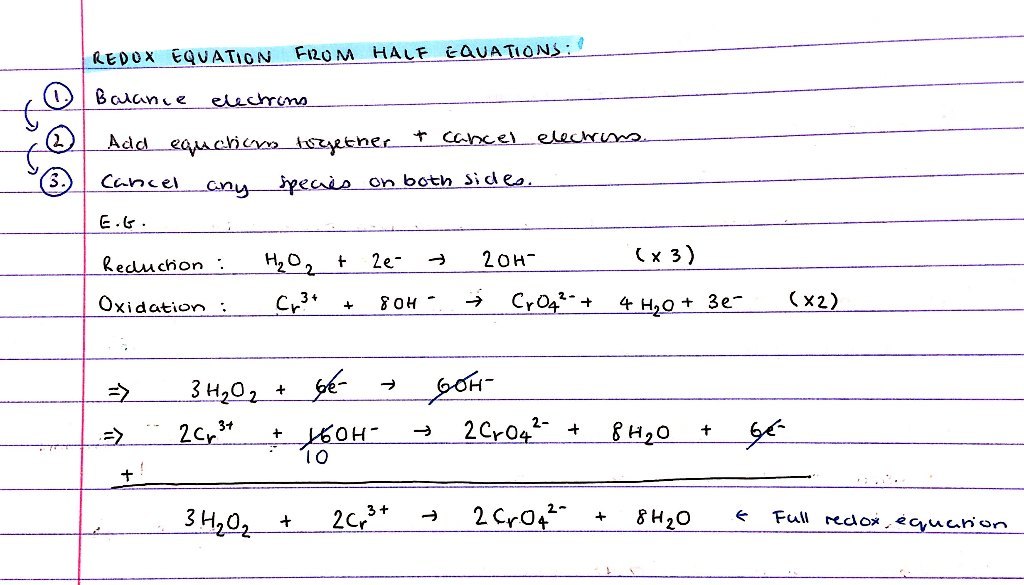 REDOX EQUATION FROM HALF EQUATIONS:
1. Balance electrons
2. Add equations together + cancel electrons.
3. Cancel any species on both sides.
E.G.
Reduction : H₂O₂ + 2e⁻ → 2OH⁻ (×3)
Oxidation : Cr³⁺ + 8OH⁻ → CrO₄²⁻ + 4H₂O + 3e⁻ (×2)
⇒ 3H₂O₂ + 6e⁻ → 6OH⁻
⇒ 2Cr³⁺ + 16OH⁻ → 2CrO₄²⁻ + 8H₂O + 6e⁻
10
+
3H₂O₂ + 2Cr³⁺ → 2CrO₄²⁻ + 8H₂O ← Full redox equation